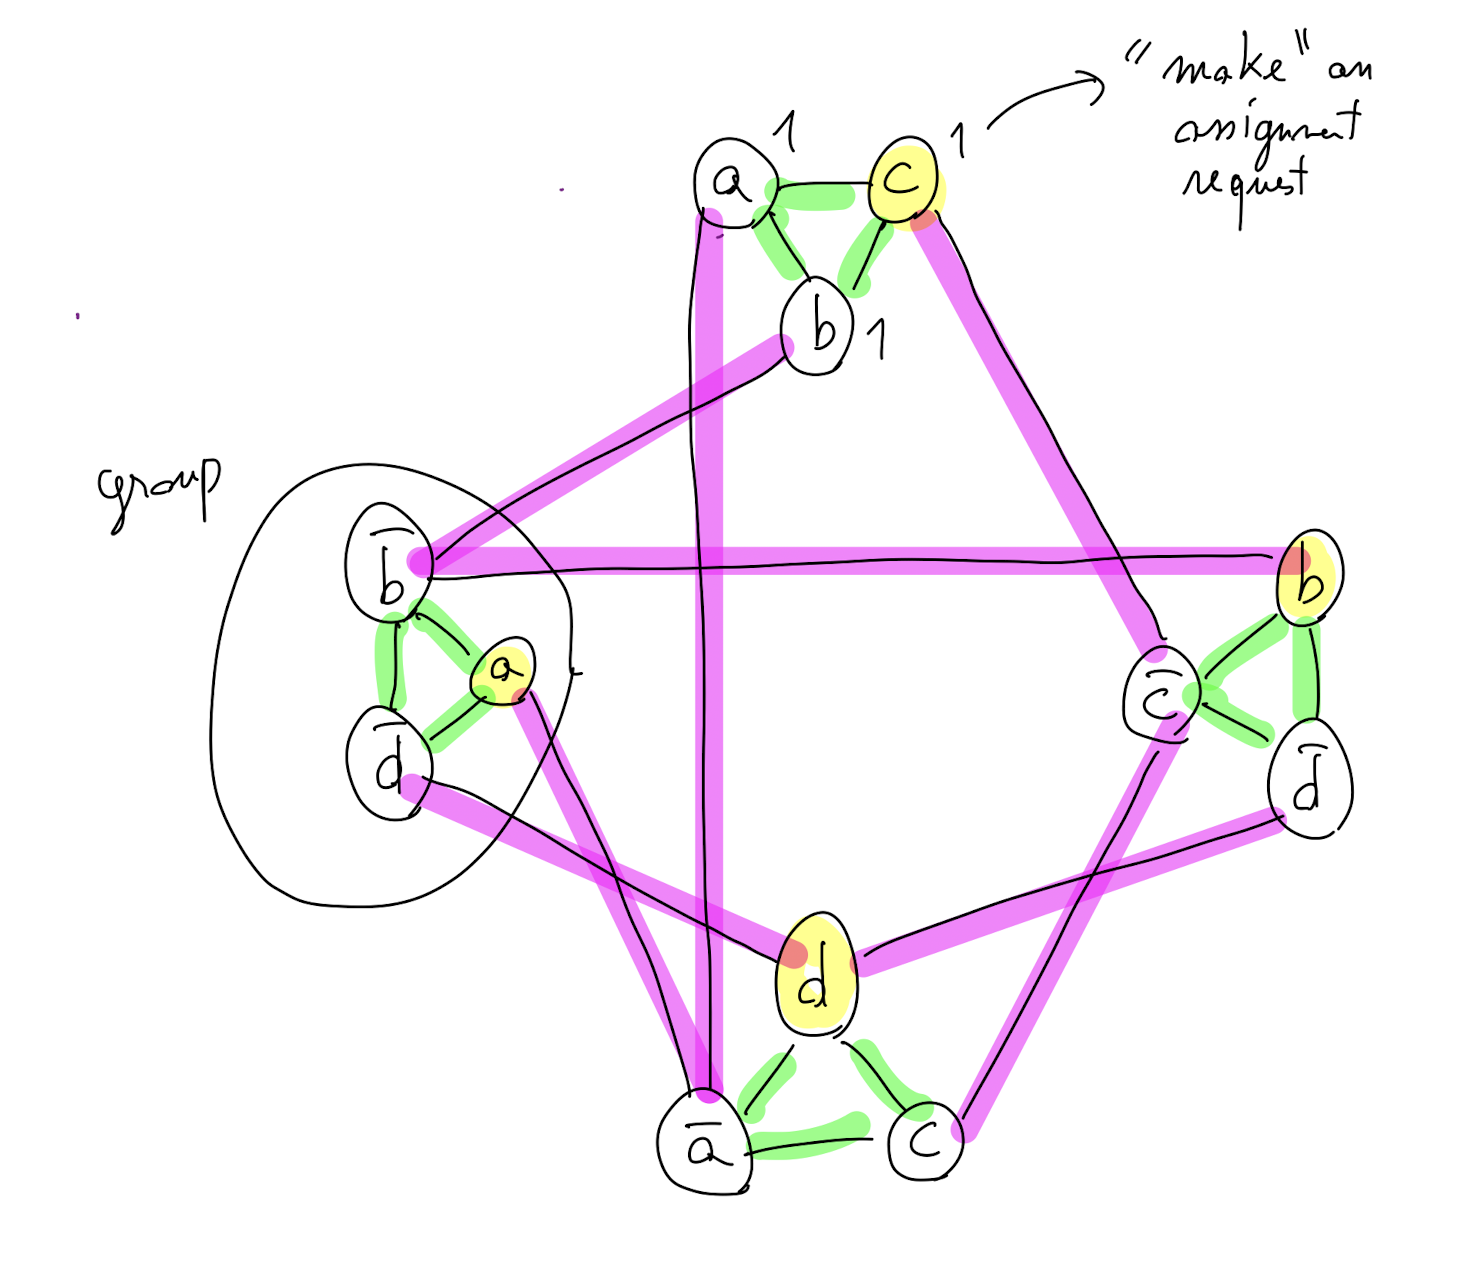 "make" an
assignment
request
1
1
a
c
b
1
group
b̅
b
a
c̅
d̅
d̅
d
a̅
c